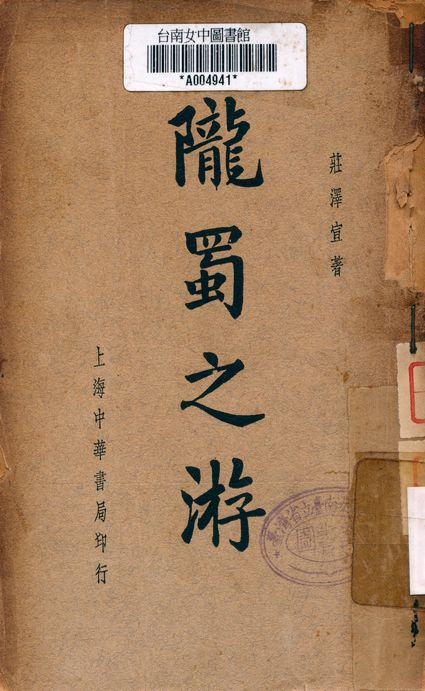 台南女中圖書館
*A004941*
莊澤宣著
隴蜀之游
上海中華書局印行